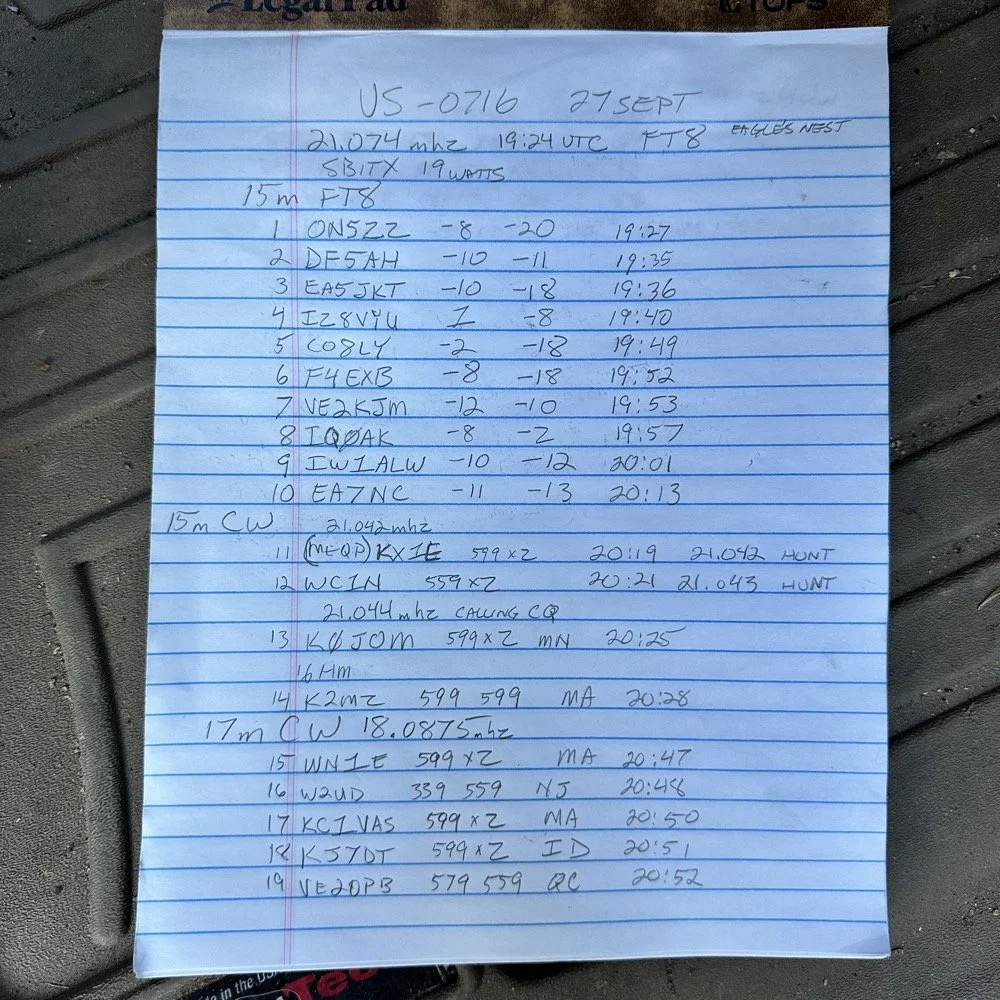 Legal Pad
TOPS
US-0716 27 SEPT
21.074 mhz 19:24 UTC FT8 EAGLES NEST
SBITX 19 WATTS
15m FT8
1 ON5ZZ -8 -20 19:27
2 DF5AH -10 -11 19:35
3 EA5JKT -10 -18 19:36
4 IZ8VYU 1 -8 19:40
5 CO8LY -2 -18 19:49
6 F4EXB -8 -18 19:52
7 VE2KJM -12 -10 19:53
8 IQØAK -8 -2 19:57
9 IW1ALW -10 -12 20:01
10 EA7NC -11 -13 20:13
15m CW 21.042mhz
11 (MEQP) KX1E 599 x2 20:19 21.042 HUNT
12 WC1N 559 x2 20:21 21.043 HUNT
21.044 mhz CALLING CQ
13 KØJOM 599 x 2 MN 20:25
16Hm
14 K2MZ 599 599 MA 20:28
17m CW 18.0875mhz
15 WN1E 599 x2 MA 20:47
16 W2UD 339 559 NJ 20:48
17 KC1VAS 599 x 2 MA 20:50
18 KJ7DT 599 x 2 ID 20:51
19 VE2DPB 579 559 QC 20:52
in the US
Tec